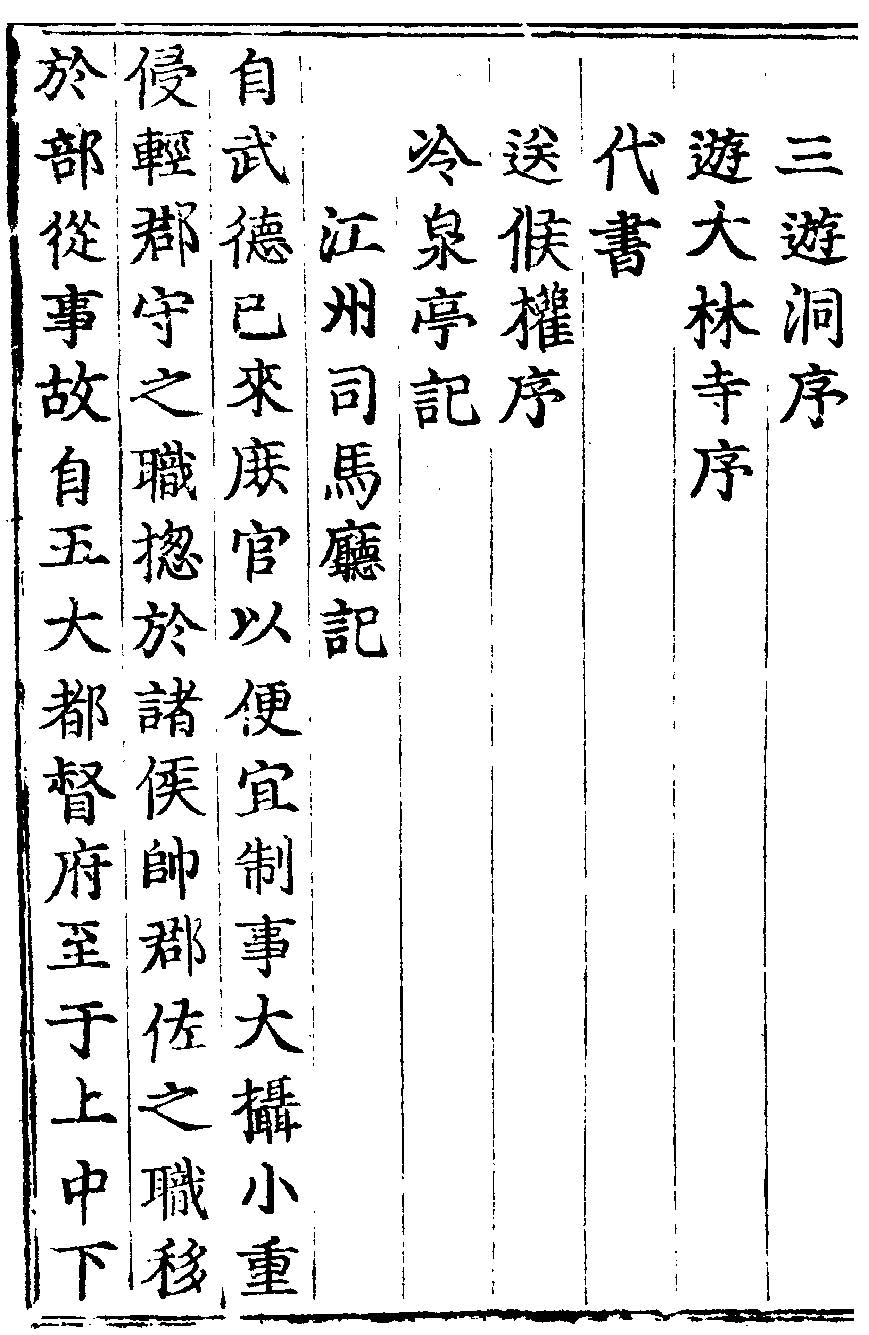 三遊洞序
遊大林寺序
代書
送侯權序
冷泉亭記
江州司馬廳記
自武德已來庶官以便宜制事大攝小重
侵輕郡守之職揔於諸侯帥郡佐之職移
於部從事故自五大都督府至于上中下